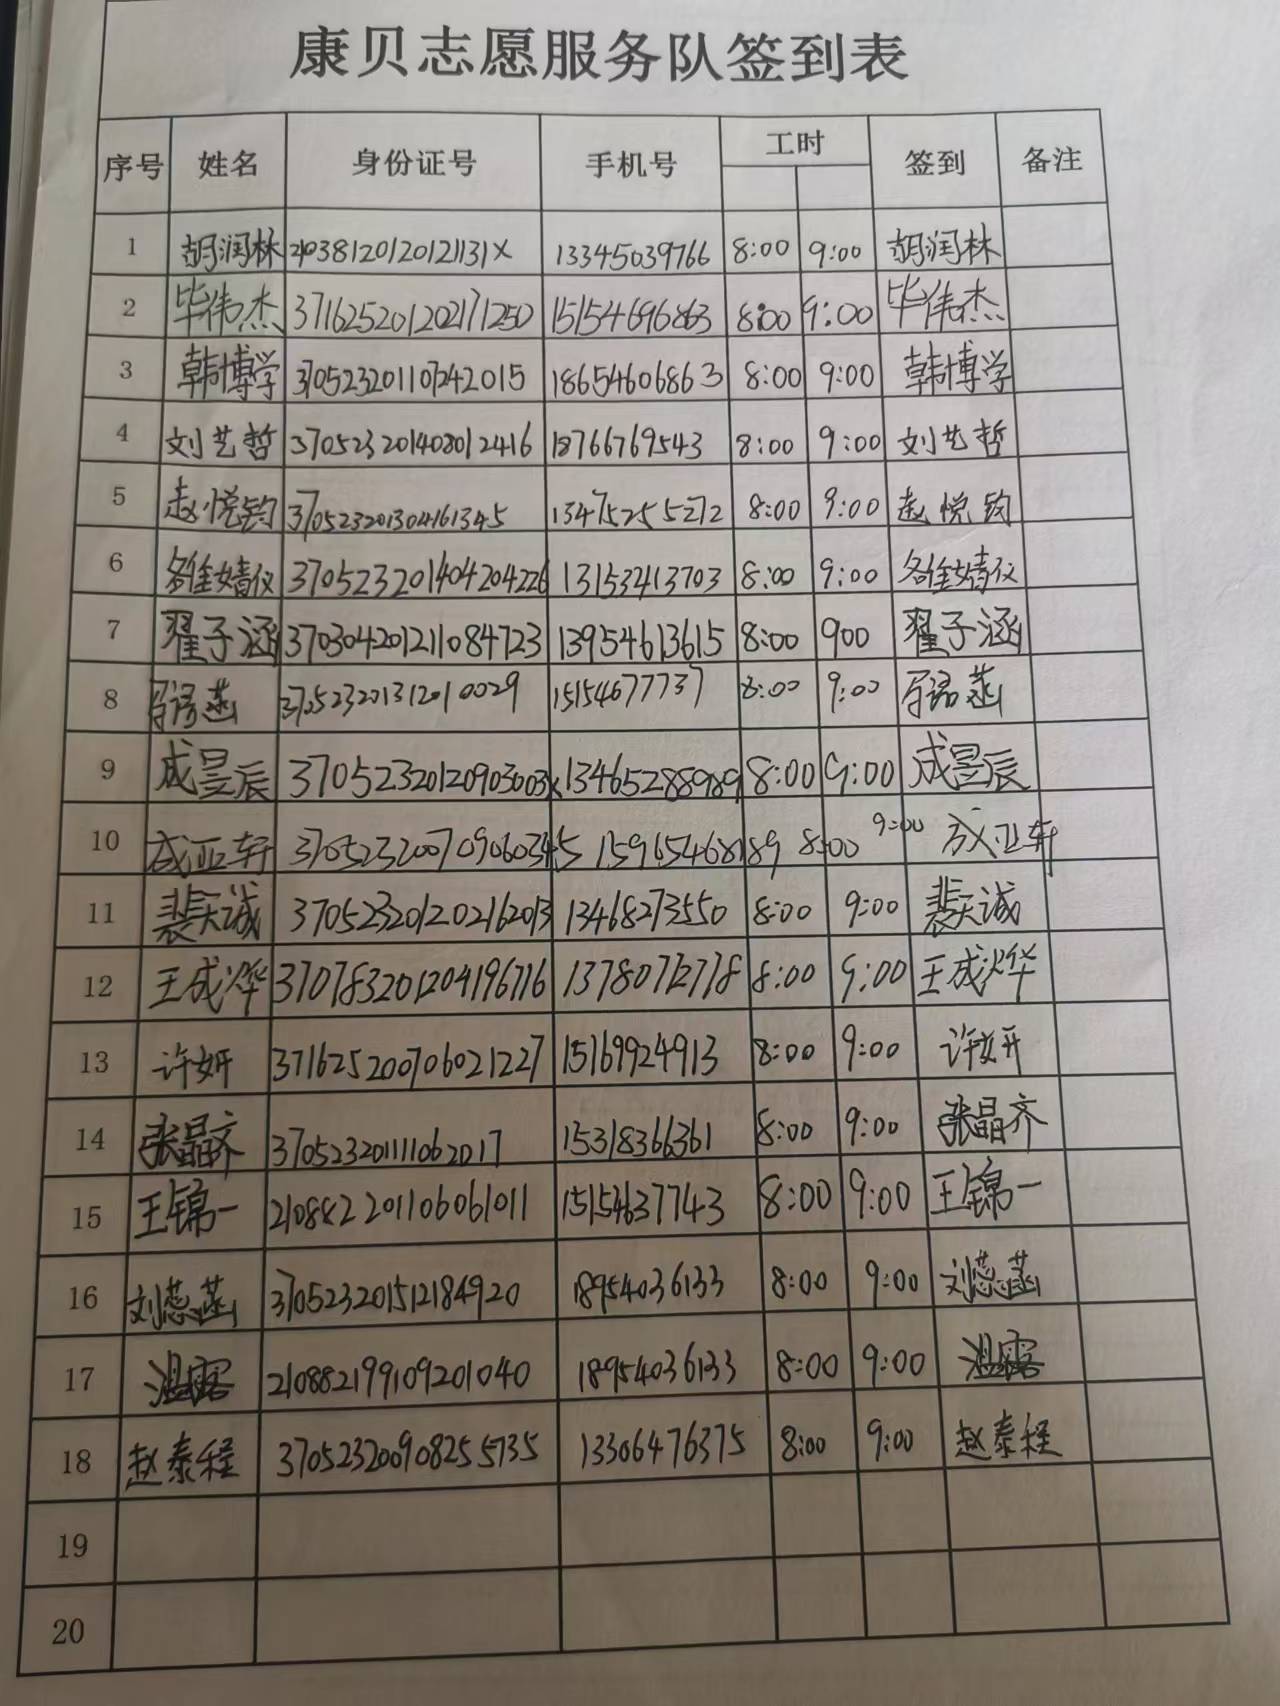 康贝志愿服务队签到表
序号 姓名 身份证号 手机号 工时 签到 备注
1 胡润林 21038120120121131X 13345039766 8:00 9:00 胡润林
2 毕伟杰 371625201202171250 15154696863 8:00 9:00 毕伟杰
3 韩博学 370523201107242015 18654606863 8:00 9:00 韩博学
4 刘艺哲 370523201408012416 18766769543 8:00 9:00 刘艺哲
5 赵悦钧 370523201304161345 13475255272 8:00 9:00 赵悦钧
6 婧仪 370523201404204226 13153413703 8:00 9:00 婧仪
7 翟子涵 370304201211084723 13954613615 8:00 900 翟子涵
8 菡 370523201312010029 15154677737 8:00 9:00 菡
9 成昱辰 37052320120903003X 13465288989 8:00 9:00 成昱辰
10 成亚轩 370523200709060345 15965468189 8:00 9:00 成亚轩
11 裴天诚 370523201202162013 13468273550 8:00 9:00 裴天诚
12 王成烨 370783201204196716 13780772778 8:00 9:00 王成烨
13 许妍 371625200706021227 15169924913 8:00 9:00 许妍
14 张晶齐 370523201111062017 15318366361 8:00 9:00 张晶齐
15 王锦一 210882201106061011 15154637743 8:00 9:00 王锦一
16 刘蕊菡 370523201512184920 18954036133 8:00 9:00 刘蕊菡
17 温露 210882199109201040 18954036133 8:00 9:00 温露
18 赵泰程 370523200908255735 13306476375 8:00 9:00 赵泰程
19
20